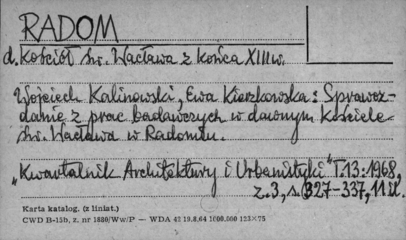 RADOM
d. Kościół św. Wacława z końca XIII w.
Wojciech Kalinowski, Ewa Kierzkowska: Sprawoz-
danie z prac badawczych w dawnym Kościele
św. Wacława w Radomiu.
„Kwartalnik Architektury i Urbanistyki" T.13:1968,
z.3, s. 327-337, 11 il.
Karta katalog. (z liniat.)
CWD B-15b, z. nr 1880/Ww/P — WDA 42 19.8.64 1000.000 125×75